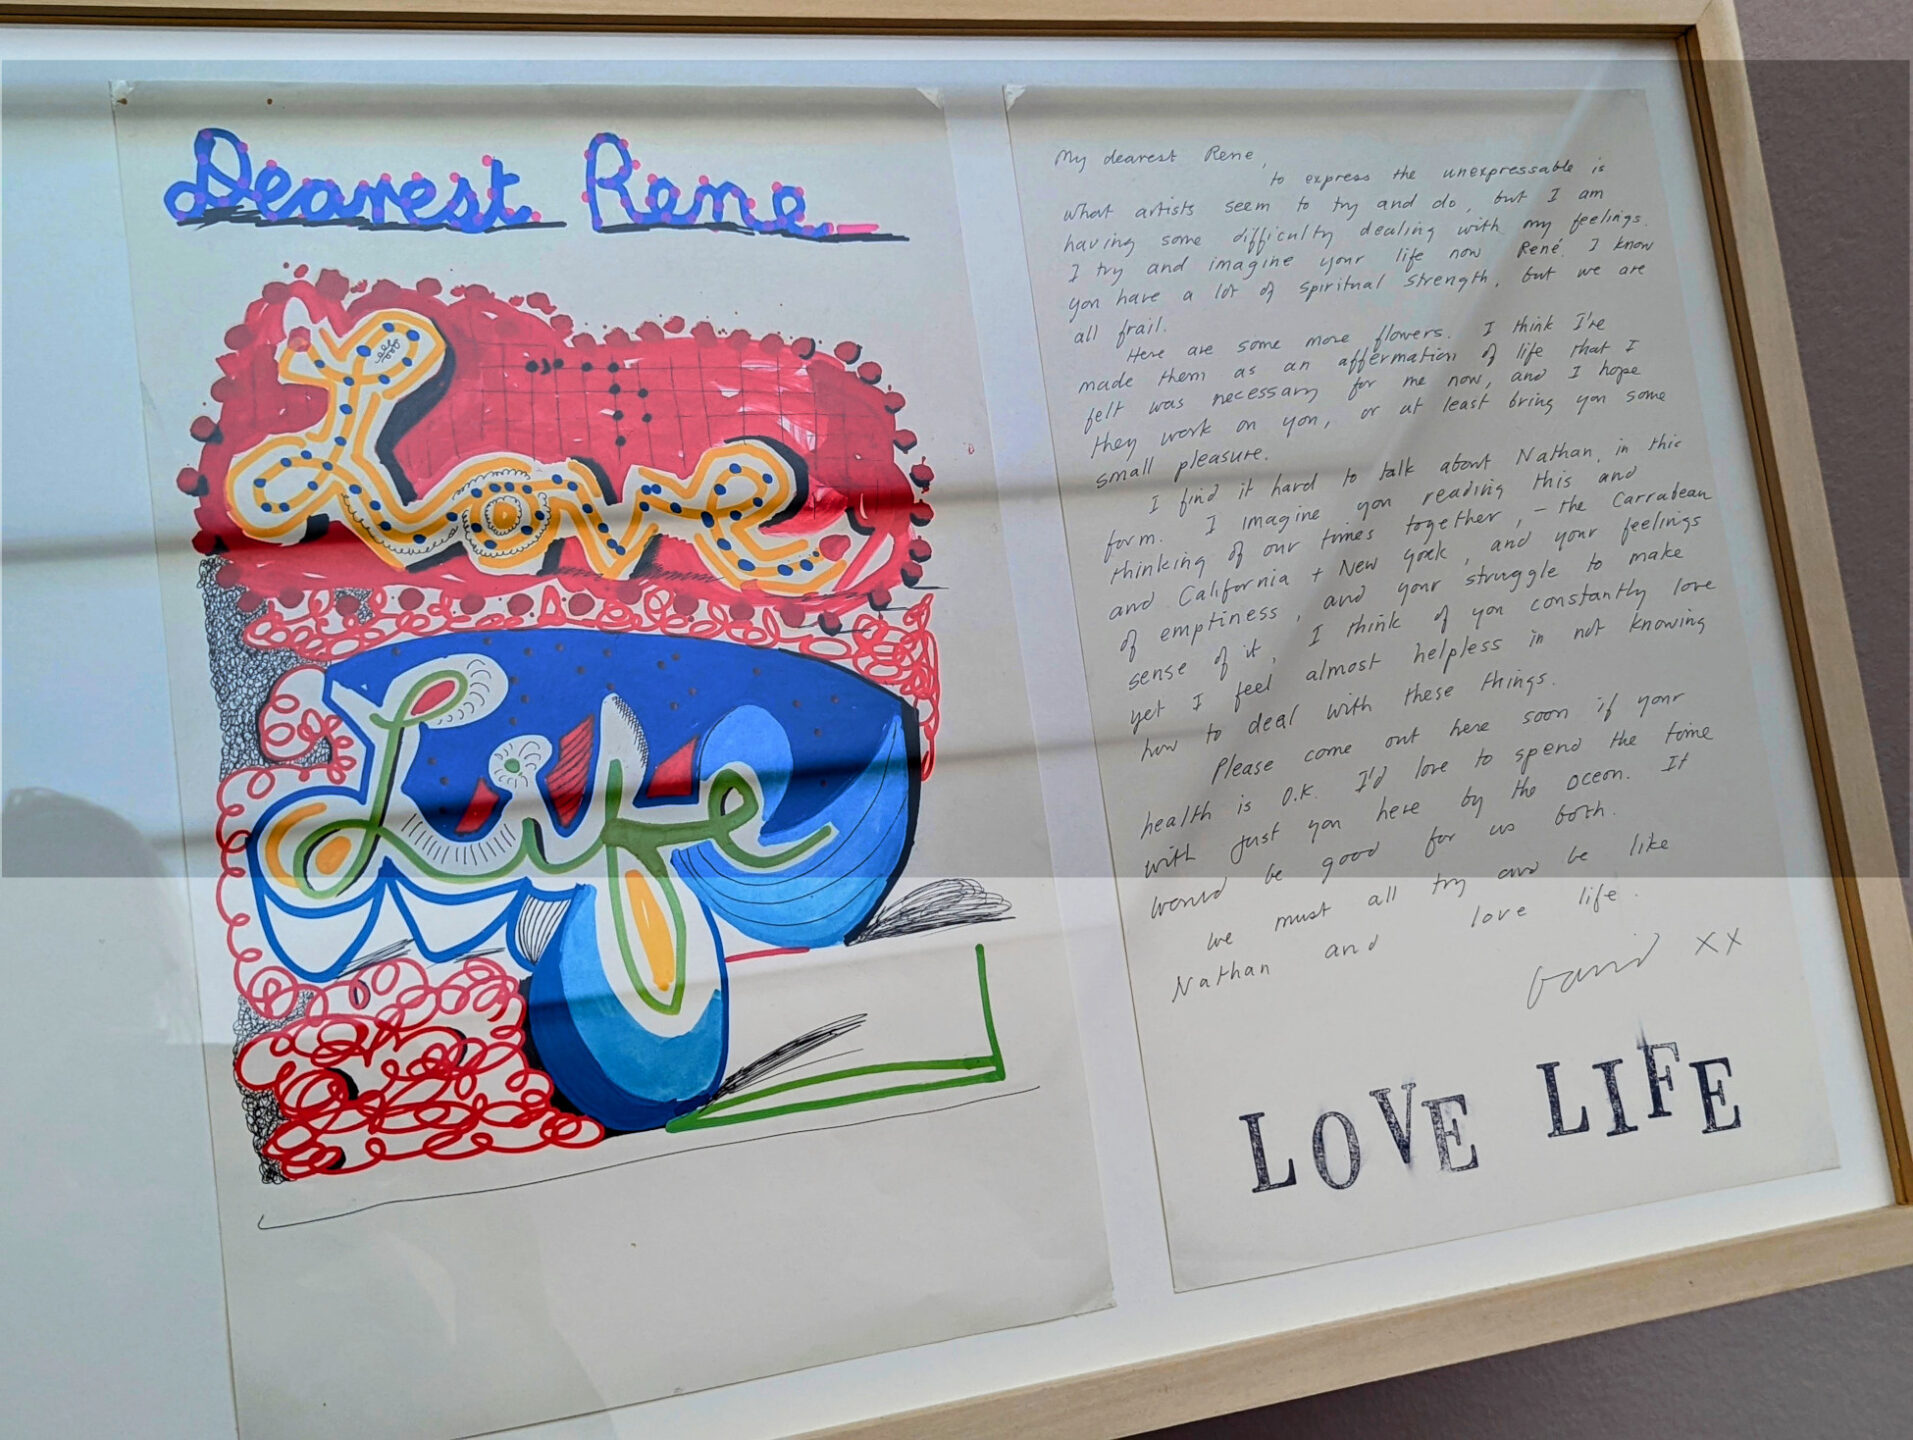 Dearest Rene
Love
Life
My dearest Rene,
to express the unexpressable is
what artists seem to try and do, but I am
having some difficulty dealing with my feelings.
I try and imagine your life now René. I know
you have a lot of spiritual strength, but we are
all frail.
Here are some more flowers. I think I've
made them as an affermation of life that I
felt was necessary for me now, and I hope
they work on you, or at least bring you some
small pleasure.
I find it hard to talk about Nathan, in this
form. I imagine you reading this and
thinking of our times together, - the Carrabean
and California + New York, and your feelings
of emptiness, and your struggle to make
sense of it, I think of you constantly love
yet I feel almost helpless in not knowing
how to deal with these things.
Please come out here soon if your
health is O.K. I'd love to spend the time
with just you here by the ocean. It
would be good for us both.
We must all try and be like
Nathan and love life.
David XX
LOVE LIFE